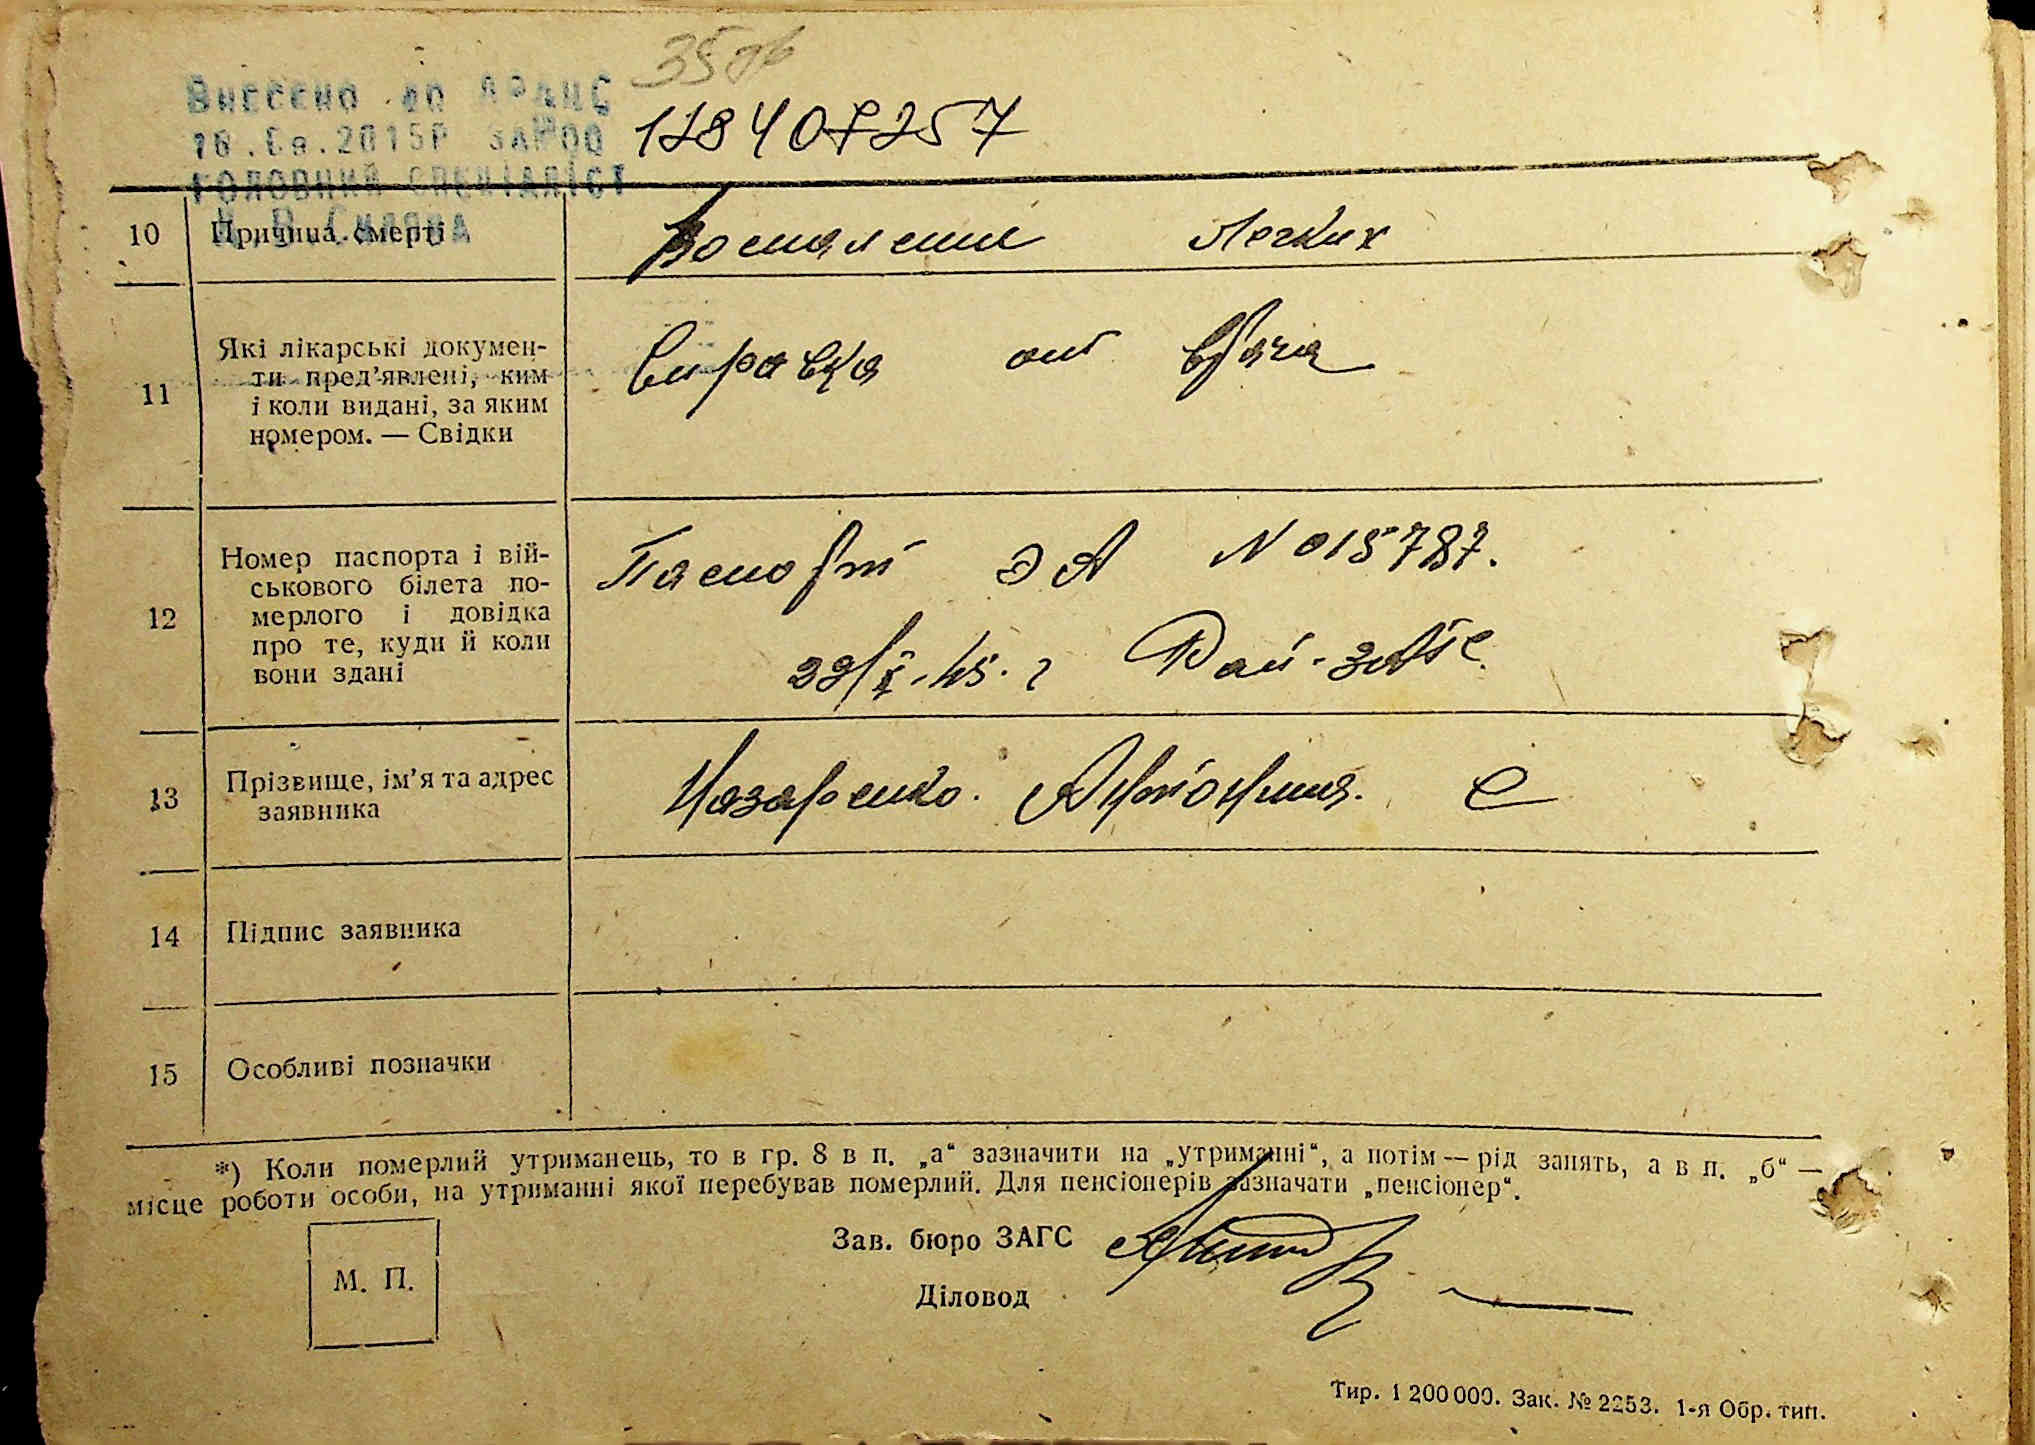 35 зв
Внесено до ДРАЦС
128407257
ГОЛОВНИЙ СПЕЦІАЛІСТ
10 Причина смерті Воспаление Легких
11 Які лікарські докумен-
ти пред'явлені, ким
і коли видані, за яким
номером. — Свідки
Справка от врача
12 Номер паспорта і вій-
ськового білета по-
мерлого і довідка
про те, куди й коли
вони здані
Паспорт ЭА N 015787.
22/X-45. г Рай-ЗАГС.
13 Прізвище, ім'я та адрес
заявника
Назаренко. Антонина. С
14 Підпис заявника
15 Особливі позначки
*) Коли померлий утриманець, то в гр. 8 в п. „а“ зазначити на „утриманні“, а потім — рід занять, а в п. „б“ —
місце роботи особи, на утриманні якої перебував померлий. Для пенсіонерів зазначати „пенсіонер“.
Зав. бюро ЗАГС
М. П.
Діловод
Тир. 1 200 000. Зак. № 2253. 1-я Обр. тип.